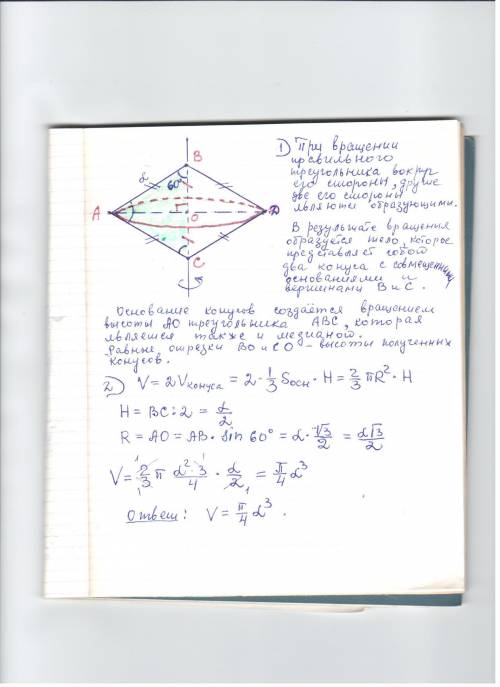 B
α
60°
A
O
D
C
1) При вращении
правильного
треугольника вокруг
его стороны, другие
две его стороны
являются образующими.
В результате вращения
образуется тело, которое
представляет собой
два конуса с совмещенными
основаниями и
вершинами B и C.
Основание конусов создаётся вращением
высоты AO треугольника ABC, которая
является также и медианой.
Равные отрезки BO и CO – высоты полученных
конусов.
2) V = 2Vконуса = 2 · 1/3 Sосн · H = 2/3 πR² · H
H = BC : 2 = α/2
R = AO = AB · sin 60° = α · √3/2 = α√3/2
V = 2/3 π α² · 3/4 · α/2 = π/4 α³
Ответ: V = π/4 α³.